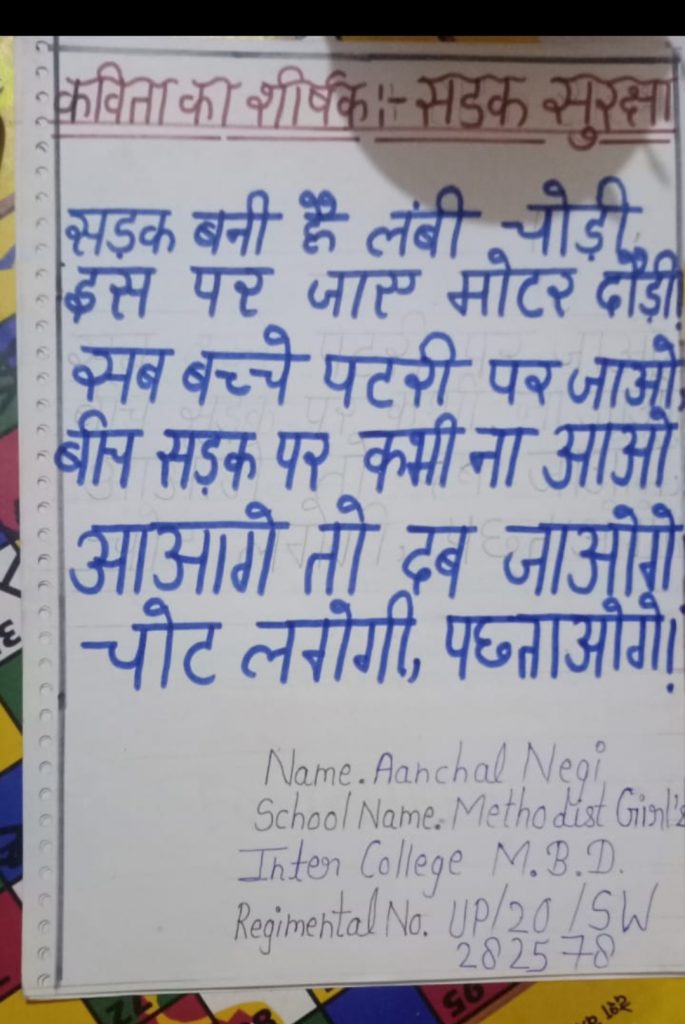 कविता का शीर्षक:- सडक सुरक्षा
सड़क बनी है लंबी चोड़ी,
इस पर जाए मोटर दौड़ी!
सब बच्चे पटरी पर जाओ,
बीच सड़क पर कभी ना आओ
आआगे तो दब जाओगे
चोट लगेगी, पछताओगे!
Name. Aanchal Negi
School Name. Methodist Girl's
Inter College M.B.D.
Regimental No. UP/20/SW
282578